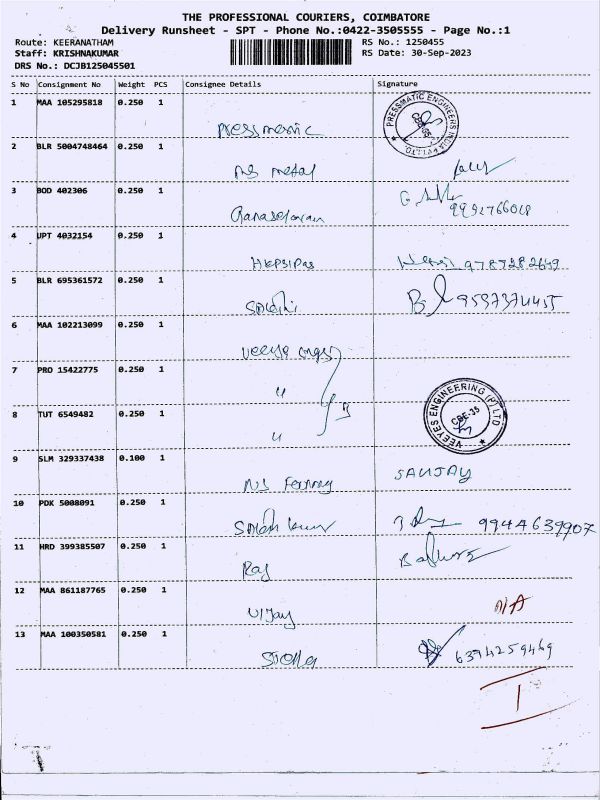 THE PROFESSIONAL COURIERS, COIMBATORE
Delivery Runsheet - SPT - Phone No.:0422-3505555 - Page No.:1
Route: KEERANATHAM RS No.: 1250455
Staff: KRISHNAKUMAR RS Date: 30-Sep-2023
DRS No.: DCJB125045501
S No Consignment No Weight PCS Consignee Details Signature
1 MAA 105295818 0.250 1
PRESSMATIC ENGINEERS INDIA PVT LTD
2 BLR 5004748464 0.250 1
MS metal
3 BOD 402306 0.250 1
4 UPT 4032154 0.250 1
9787282649
5 BLR 695361572 0.250 1
6 MAA 102213099 0.250 1
7 PRO 15422775 0.250 1
"
8 TUT 6549482 0.250 1
"
VEEYES ENGINEERING (P) LTD
CBE-35
9 SLM 329337438 0.100 1
SANJAY
10 PDK 5008091 0.250 1
9944639907
11 HRD 399385507 0.250 1
Raj
12 MAA 861187765 0.250 1
Vijay N/A
13 MAA 100350581 0.250 1
6394259469